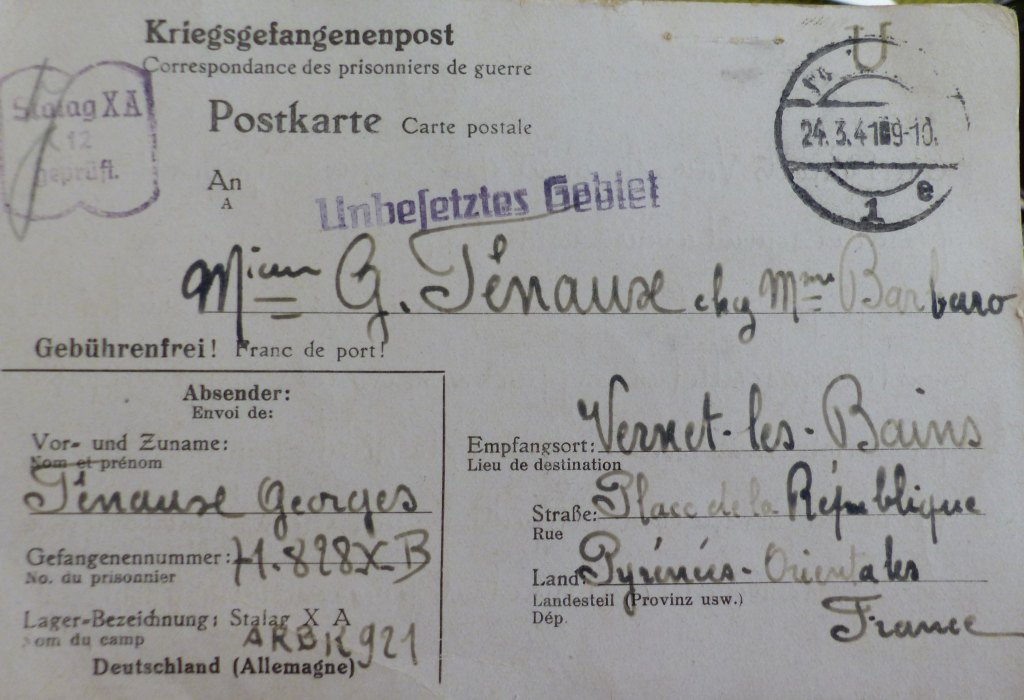 Kriegsgefangenenpost
Correspondance des prisonniers de guerre
Stalag X A
12
geprüft.
U
24.3.41 9-10.
1 e
Postkarte Carte postale
An
A
Unbesetztes Gebiet
G. Ténause chez Mme Barbaro
Gebührenfrei! Franc de port!
Absender:
Envoi de:
Vor- und Zuname:
Nom et prénom
Ténause Georges
Gefangenennummer: 71.828 X B
No. du prisonnier
Lager-Bezeichnung: Stalag X A
Nom du camp
ARBK 921
Deutschland (Allemagne)
Empfangsort: Vernet-les-Bains
Lieu de destination
Straße: Place de la République
Rue
Land: Pyrénées-Orientales
Landesteil (Provinz usw.)
Dép.
France